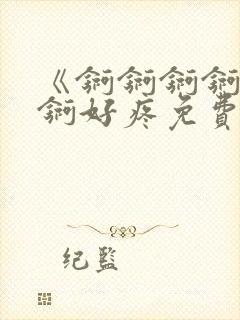 《锕锕锕锕
锕好疼免費
纪监